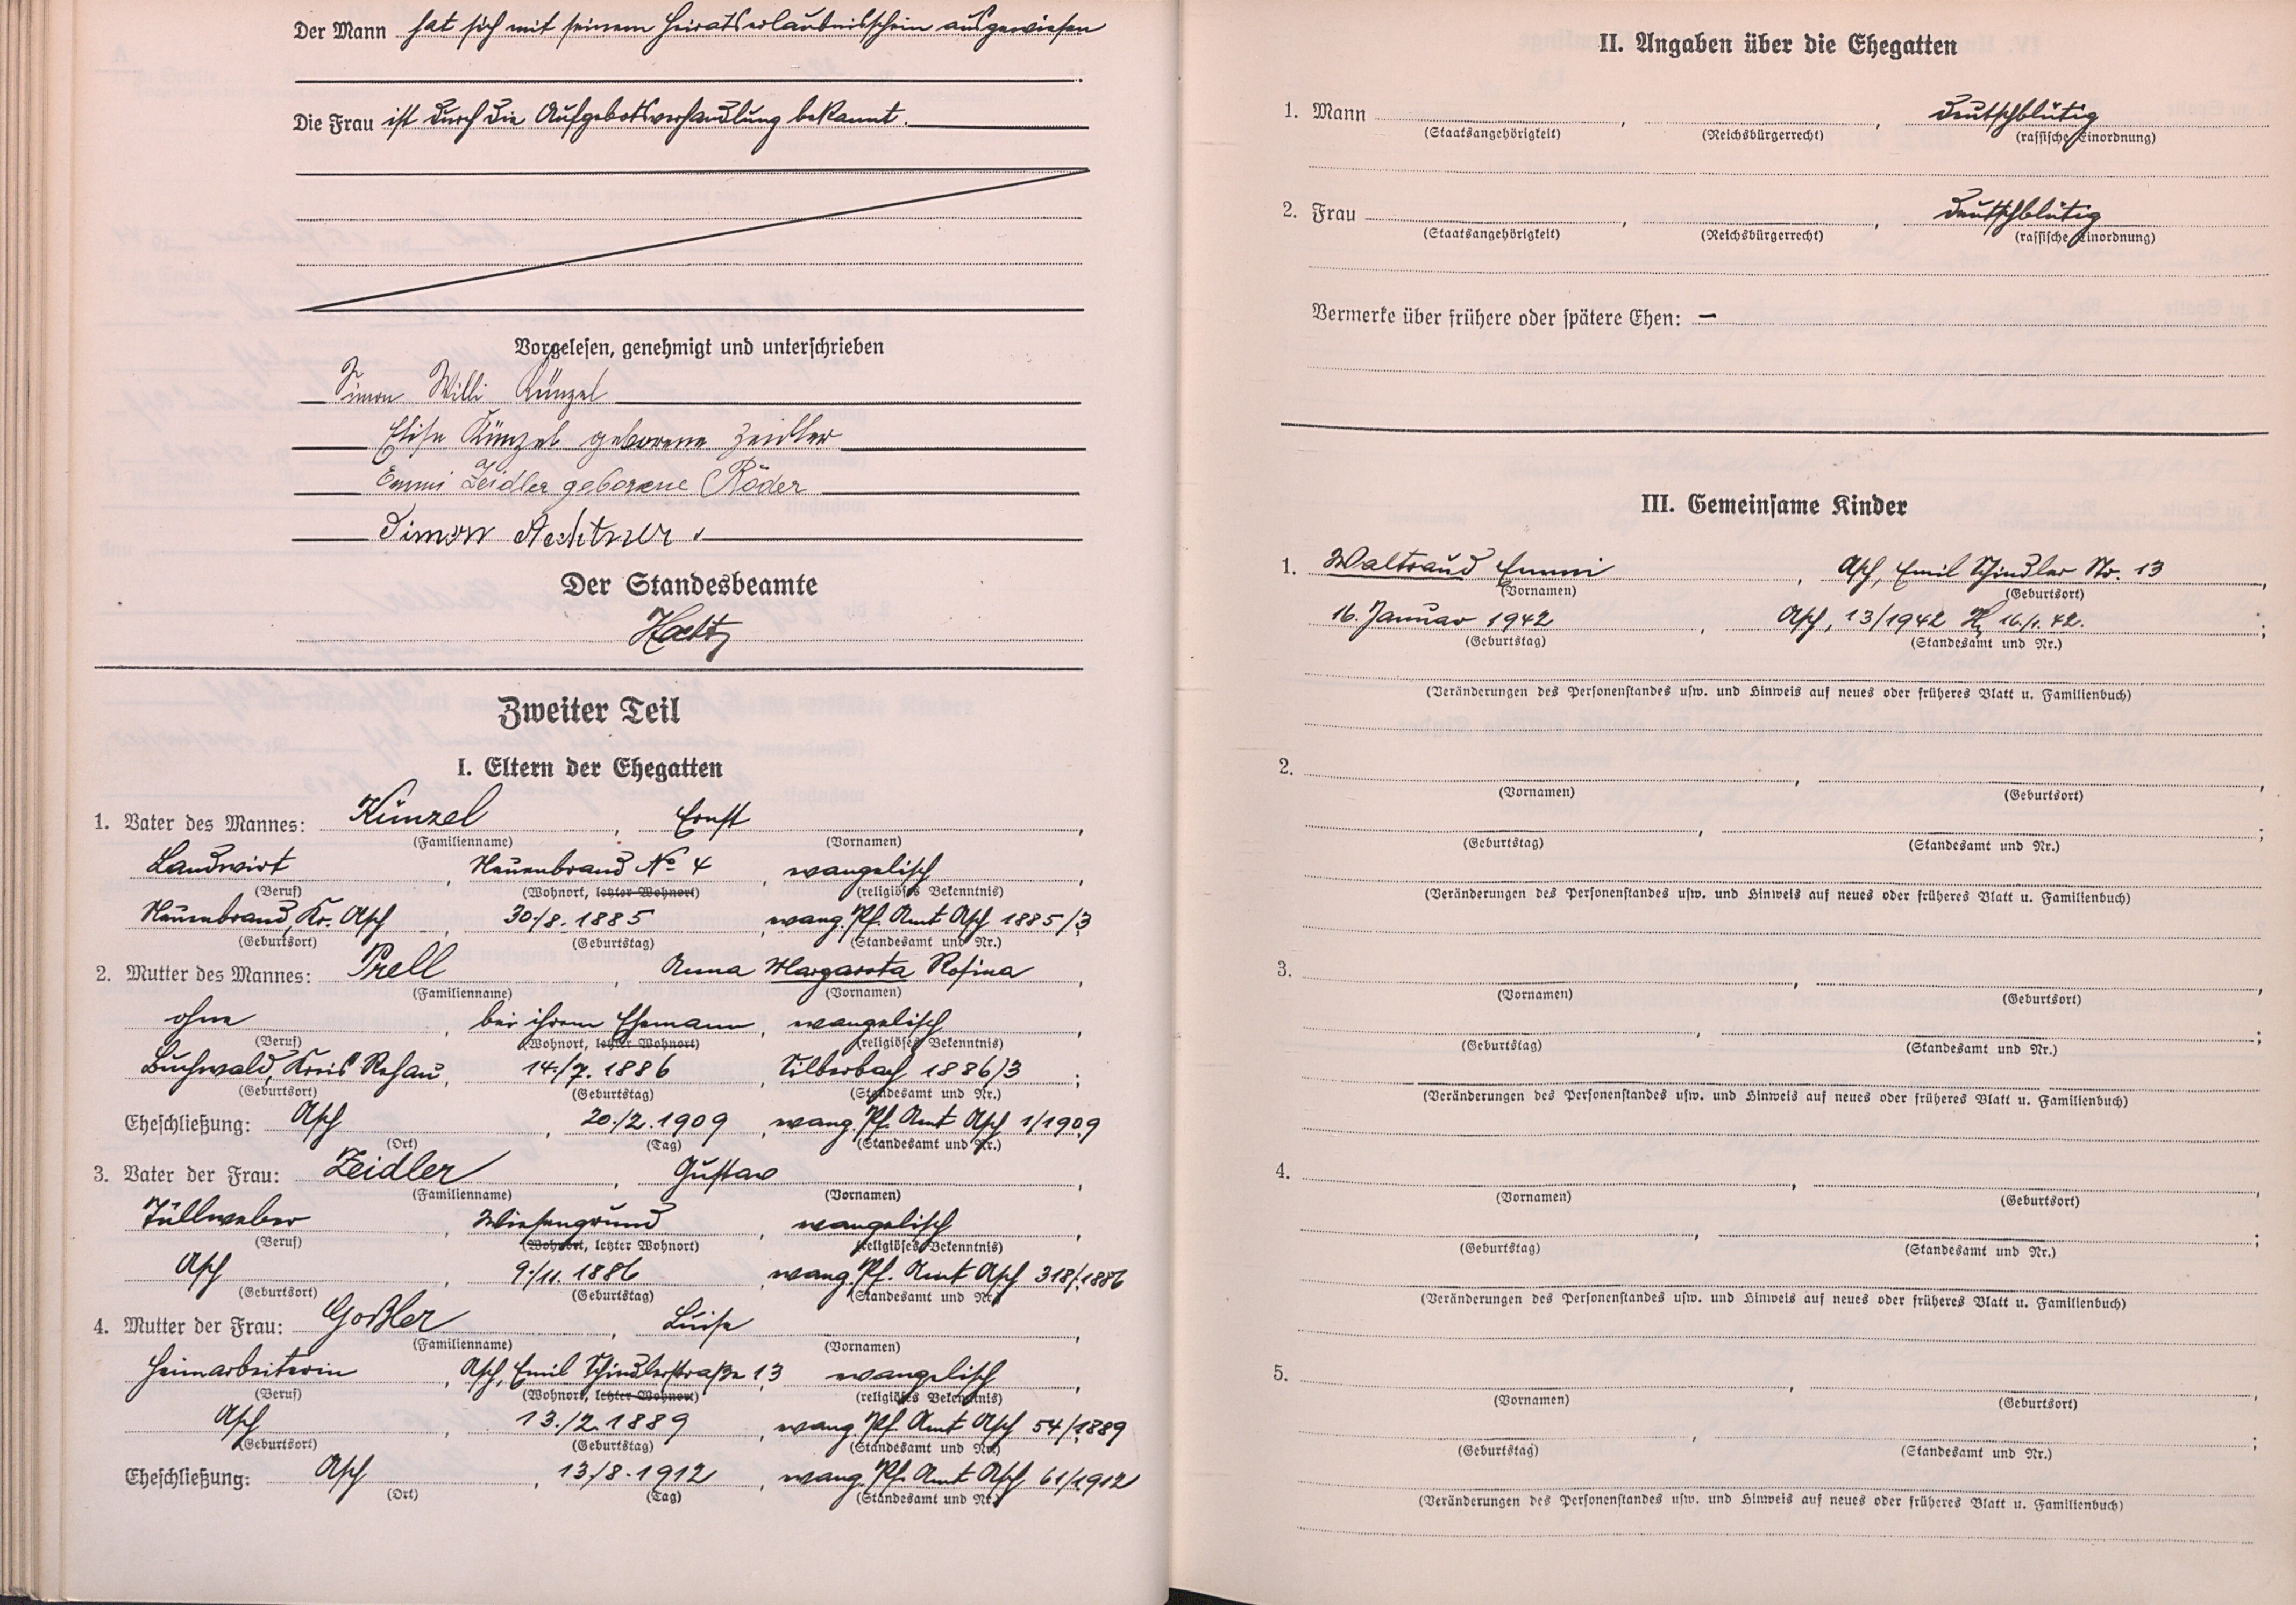 Der Mann hat sich mit seinem Heiratserlaubnisschein ausgewiesen
Die Frau ist durch die Aufgebotsverhandlung bekannt.
Vorgelesen, genehmigt und unterschrieben
Simon Willi Künzel
Elise Künzel geborene Zeidler
Emmi Zeidler geborene Röder
Simon Aechtner
Der Standesbeamte
Zweiter Teil
I. Eltern der Ehegatten
1. Vater des Mannes: Künzel, Ernst,
(Familienname) (Vornamen)
Landwirt, Neuenbrand No 4, evangelisch,
(Beruf) (Wohnort, letzter Wohnort) (religiöses Bekenntnis)
Neuenbrand, Kr. Asch, 30./8. 1885, evang. Pf. Amt Asch 1885/3
(Geburtsort) (Geburtstag) (Standesamt und Nr.)
2. Mutter des Mannes: Prell, Anna Margareta Rosina,
(Familienname) (Vornamen)
ohne, bei ihrem Ehemann, evangelisch,
(Beruf) (Wohnort, letzter Wohnort) (religiöses Bekenntnis)
Buchwald, Kreis Rehau, 14./7. 1886, Silberbach 1886/3;
(Geburtsort) (Geburtstag) (Standesamt und Nr.)
Eheschließung: Asch, 20./2. 1909, evang. Pf. Amt Asch 1/1909
(Ort) (Tag) (Standesamt und Nr.)
3. Vater der Frau: Zeidler, Gustav,
(Familienname) (Vornamen)
Tüllweber, Wiesengrund, evangelisch,
(Beruf) (Wohnort, letzter Wohnort) (religiöses Bekenntnis)
Asch, 9./11. 1886, evang. Pf. Amt Asch 318/1886
(Geburtsort) (Geburtstag) (Standesamt und Nr.)
4. Mutter der Frau: Goßler, Luise,
(Familienname) (Vornamen)
Heimarbeiterin, Asch, Emil Schindlerstraße 13, evangelisch,
(Beruf) (Wohnort, letzter Wohnort) (religiöses Bekenntnis)
Asch, 13./2. 1889, evang. Pf. Amt Asch 54/1889
(Geburtsort) (Geburtstag) (Standesamt und Nr.)
Eheschließung: Asch, 13./8. 1912, evang. Pf. Amt Asch, 61/1912
(Ort) (Tag) (Standesamt und Nr.)
II. Angaben über die Ehegatten
1. Mann , , deutschblütig
(Staatsangehörigkeit) (Reichsbürgerrecht) (rassische Einordnung)
2. Frau , , deutschblütig
(Staatsangehörigkeit) (Reichsbürgerrecht) (rassische Einordnung)
Vermerke über frühere oder spätere Ehen: —
III. Gemeinsame Kinder
1. Waltraud Emmi, Asch, Emil Schindler Str. 13,
(Vornamen) (Geburtsort)
16. Januar 1942, Asch, 13/1942 16./1. 42.;
(Geburtstag) (Standesamt und Nr.)
(Veränderungen des Personenstandes usw. und Hinweis auf neues oder früheres Blatt u. Familienbuch)
2. , ,
(Vornamen) (Geburtsort)
, ;
(Geburtstag) (Standesamt und Nr.)
(Veränderungen des Personenstandes usw. und Hinweis auf neues oder früheres Blatt u. Familienbuch)
3. , ,
(Vornamen) (Geburtsort)
, ;
(Geburtstag) (Standesamt und Nr.)
(Veränderungen des Personenstandes usw. und Hinweis auf neues oder früheres Blatt u. Familienbuch)
4. , ,
(Vornamen) (Geburtsort)
, ;
(Geburtstag) (Standesamt und Nr.)
(Veränderungen des Personenstandes usw. und Hinweis auf neues oder früheres Blatt u. Familienbuch)
5. , ,
(Vornamen) (Geburtsort)
, ;
(Geburtstag) (Standesamt und Nr.)
(Veränderungen des Personenstandes usw. und Hinweis auf neues oder früheres Blatt u. Familienbuch)